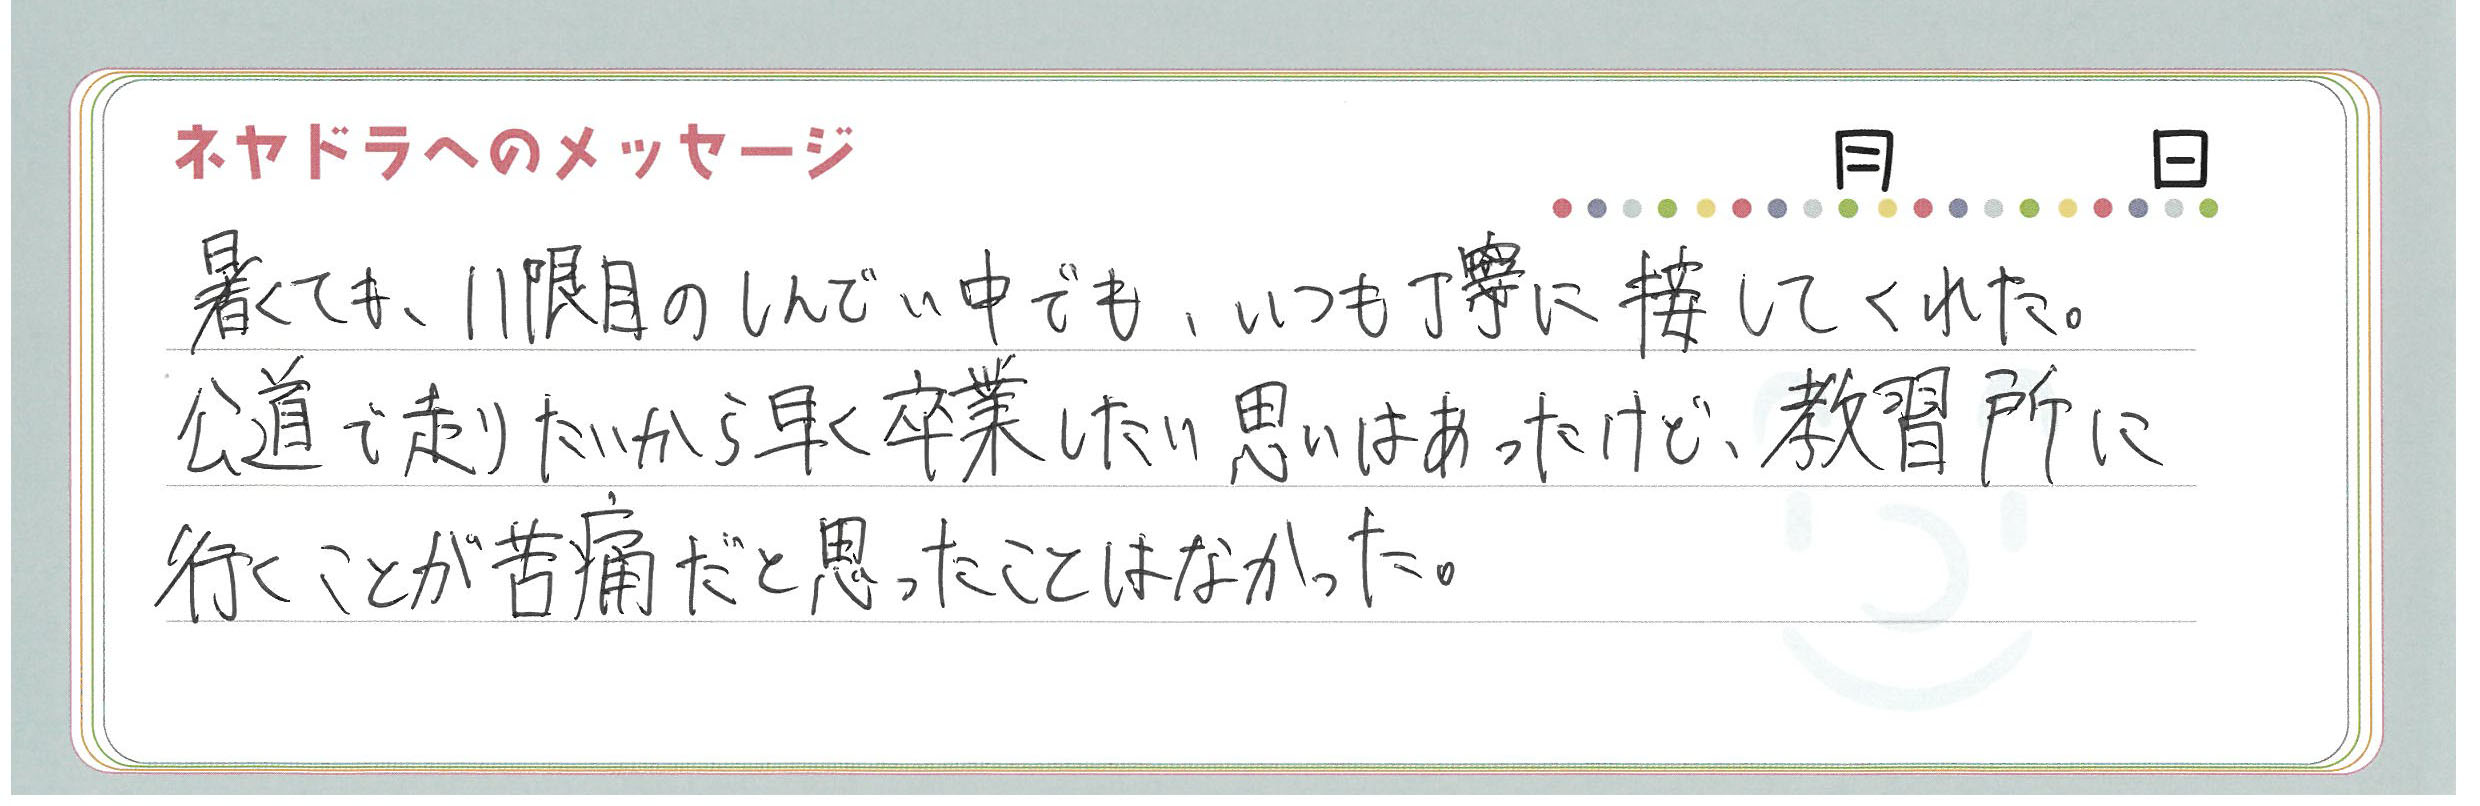 ネヤドラへのメッセージ
月 日
暑くても、11限目のしんでい中でも、いつも丁寧に接してくれた。
公道で走りたいから早く卒業したい思いはあったけど、教習所に
行くことが苦痛だと思ったことはなかった。